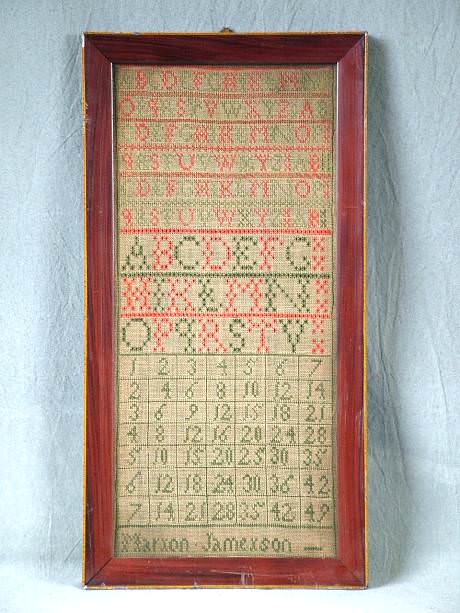 B D F A H K M
O P S V W X Y Z A
D F A H M N O
P S U W Y
D F H K M O
P S U W X Y
A B C D E F G
H I K L M N
O P Q R S T V
1 2 3 4 5 6 7
2 4 6 8 10 12 14
3 6 9 12 15 18 21
4 8 12 16 20 24 28
5 10 15 20 25 30 35
6 12 18 24 30 36 42
7 14 21 28 35 42 49
Marion Jamexson